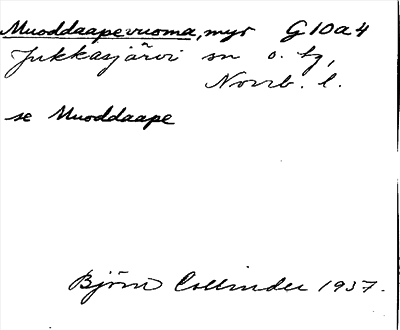 Muoddaapevuoma, myr G10a4
Jukkasjärvi sn o. tg,
Norrb. l.
se Muoddaape
Björn Collinder 1937.